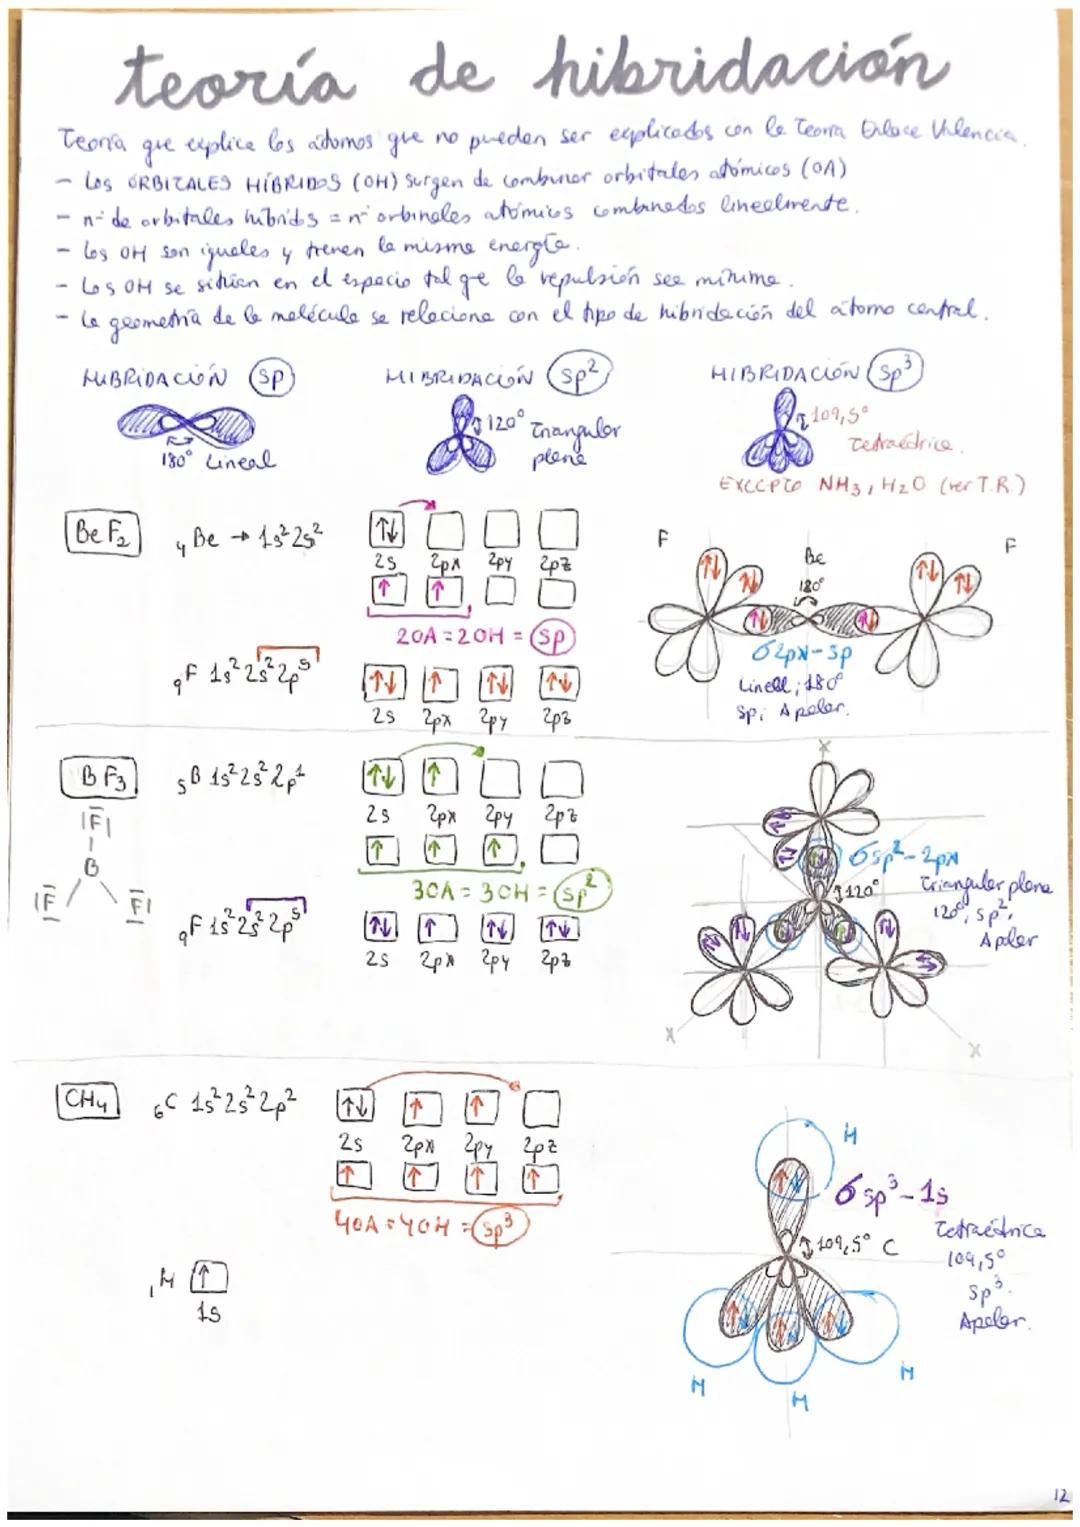 teoría de hibridación
Teoría que explica los átomos que no pueden ser explicados con la Teoría Enlace Valencia.
- Los ORBITALES HÍBRIDOS (OH) surgen de combinar orbitales atómicos (OA)
- nº de orbitales híbridos = nº orbinales atómicos combinados linealmente.
- Los OH son iguales y tienen la misma energía.
- Los OH se sitúan en el espacio tal que la repulsión sea mínima.
- La geometría de la molécula se relaciona con el tipo de hibridación del átomo central.
HIBRIDACIÓN sp
180° Lineal
HIBRIDACIÓN sp²
120° Triangular
plana
HIBRIDACIÓN sp³
109,5°
Tetraédrica.
EXCEPTO NH₃, H₂O (ver T.R.)
BeF₂
₄Be → 1s²2s²
↑↓
2s 2px 2py 2pz
↑ ↑
2OA = 2OH = sp
₉F 1s²2s²2p⁵
↑↓ ↑ ↑↓ ↑↓
2s 2px 2py 2pz
F Be F
180°
σ 2px-sp
Lineal; 180°
sp; Apolar.
BF₃
₅B 1s²2s²2p¹
↑↓ ↑
2s 2px 2py 2pz
↑ ↑ ↑
3OA = 3OH = sp²
F
B
F F
₉F 1s²2s²2p⁵
↑↓ ↑ ↑↓ ↑↓
2s 2px 2py 2pz
x
σ sp²-2px
120°
Triangular plana
120°, sp²,
Apolar
x x
CH₄
₆C 1s²2s²2p²
↑↓ ↑ ↑
2s 2px 2py 2pz
↑ ↑ ↑ ↑
4OA = 4OH = sp³
₁H ↑
1s
H
σ sp³-1s
109,5° C
Tetraédrica
109,5°
sp³.
Apolar.
H H H
12